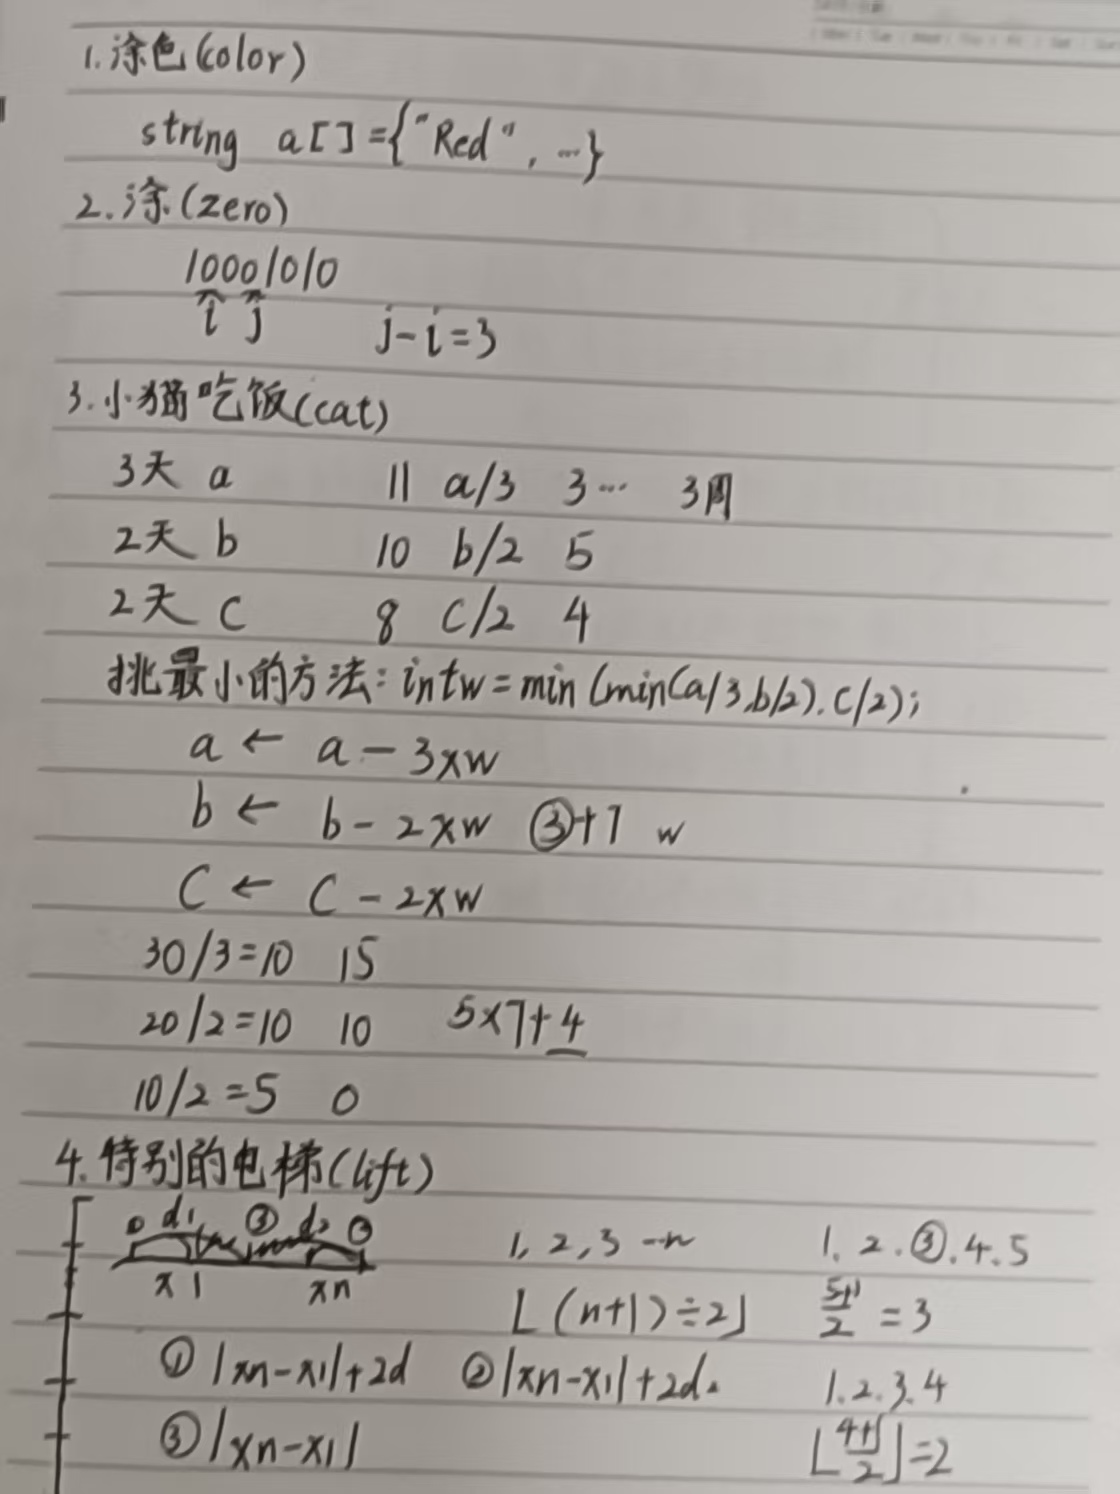 1.涂色(color)
string a[]={"Red",…}
2.涂(zero)
10001010
i j j-i=3
3.小猫吃饭(cat)
3天 a 11 a/3 3… 3周
2天 b 10 b/2 5
2天 c 8 c/2 4
挑最小的方法:int w=min(min(a/3,b/2).c/2);
a ← a-3×w
b ← b-2×w ③+7 w
c ← c-2×w
30/3=10 15
20/2=10 10 5×7+4
10/2=5 0
4.特别的电梯(lift)
d₁ ③ d₂
x1 xn
1,2,3…n 1.2.③.4.5
⌊(n+1)÷2⌋ 5+1/2=3
①|xn-x1|+2d ②|xn-x1|+2d. 1.2.3.4
③|xn-x1| ⌊4+1/2⌋=2